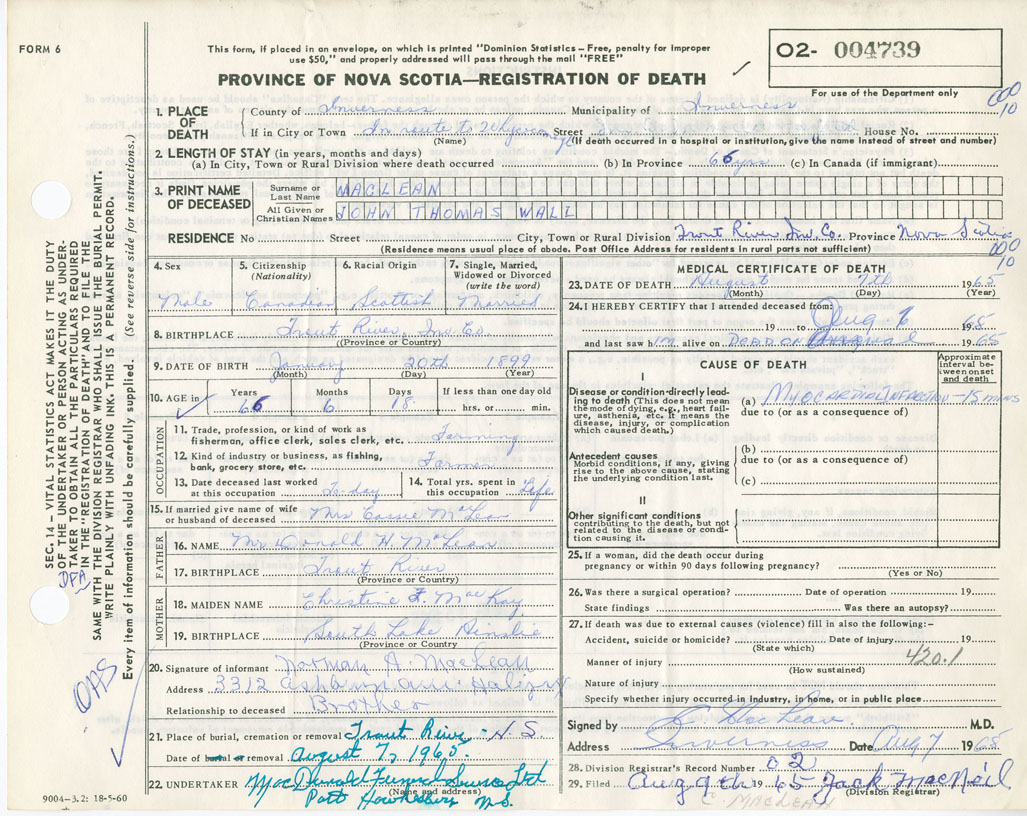 FORM 6
This form, if placed in an envelope, on which is printed "Dominion Statistics – Free, penalty for improper
use $50," and properly addressed will pass through the mail "FREE"
PROVINCE OF NOVA SCOTIA—REGISTRATION OF DEATH
02- 004739
For use of the Department only
000
10
1. PLACE OF DEATH
County of Inverness Municipality of Inverness
If in City or Town In route to Whycocomagh Street House No.
(Name) (If death occurred in a hospital or institution, give the name instead of street and number)
2. LENGTH OF STAY (in years, months and days)
(a) In City, Town or Rural Division where death occurred (b) In Province 66 yrs (c) In Canada (if immigrant)
3. PRINT NAME OF DECEASED
Surname or Last Name MACLEAN
All Given or Christian Names JOHN THOMAS WALL
RESIDENCE No Street City, Town or Rural Division Trout River Inv. Co. Province Nova Scotia
(Residence means usual place of abode. Post Office Address for residents in rural parts not sufficient)
000
10
4. Sex Male
5. Citizenship (Nationality) Canadian
6. Racial Origin Scottish
7. Single, Married, Widowed or Divorced (write the word) Married
8. BIRTHPLACE Trout River, Inv. Co
(Province or Country)
9. DATE OF BIRTH January 20th 1899
(Month) (Day) (Year)
10. AGE in Years 66 Months 6 Days 18 If less than one day old hrs. or min.
OCCUPATION
11. Trade, profession, or kind of work as
fisherman, office clerk, sales clerk, etc. Farming
12. Kind of industry or business, as fishing,
bank, grocery store, etc. Farmer
13. Date deceased last worked
at this occupation To-day
14. Total yrs. spent in
this occupation Life
15. If married give name of wife
or husband of deceased Mrs Cassie McLean
FATHER
16. NAME Mr Donald H. McLean
17. BIRTHPLACE Trout River
(Province or Country)
MOTHER
18. MAIDEN NAME Christine F. MacKay
19. BIRTHPLACE South Lake Ainslie
(Province or Country)
20. Signature of informant Norman A. MacLean
Address 3312 Halifax
Relationship to deceased Brother
21. Place of burial, cremation or removal Trout River N.S
Date of burial or removal August 7, 1965
22. UNDERTAKER MacDonald Funeral Service Ltd
(Name and address)
Port Hawkesbury N.S.
9004–3.2: 18-5-60
MEDICAL CERTIFICATE OF DEATH
23. DATE OF DEATH August 7th 1965
(Month) (Day) (Year)
24. I HEREBY CERTIFY that I attended deceased from
19 to Aug. 6 1965
and last saw him alive on DEAD ON 1965
CAUSE OF DEATH
Approximate interval between onset and death
I
Disease or condition directly leading to death (This does not mean the mode of dying, e.g., heart failure, asthenia, etc. It means the disease, injury, or complication which caused death.)
(a) MYOCARDIAL INFARCTION – 15 mins
due to (or as a consequence of)
Antecedent causes
Morbid conditions, if any, giving rise to the above cause, stating the underlying condition last.
(b)
due to (or as a consequence of)
(c)
II
Other significant conditions
contributing to the death, but not related to the disease or condition causing it.
25. If a woman, did the death occur during
pregnancy or within 90 days following pregnancy?
(Yes or No)
26. Was there a surgical operation? Date of operation 19
State findings Was there an autopsy?
27. If death was due to external causes (violence) fill in also the following:–
Accident, suicide or homicide? Date of injury 19
(State which)
Manner of injury 420.1
(How sustained)
Nature of injury
Specify whether injury occurred in industry, in home, or in public place
Signed by C MacLean M.D.
Address Inverness Date Aug 7 1965
28. Division Registrar's Record Number 02
29. Filed Aug 9th 1965 Jack MacNeil
(Division Registrar)
C. MACLEAN
SEC. 14 – VITAL STATISTICS ACT MAKES IT THE DUTY
OF THE UNDERTAKER OR PERSON ACTING AS UNDER-
TAKER TO OBTAIN ALL THE PARTICULARS REQUIRED
IN THE "REGISTRATION OF DEATH" AND TO FILE THE
SAME WITH THE DIVISION REGISTRAR WHO SHALL ISSUE THE BURIAL PERMIT.
WRITE PLAINLY WITH UNFADING INK. THIS IS A PERMANENT RECORD.
Every item of information should be carefully supplied. (See reverse side for instructions.)
DPA
OAS